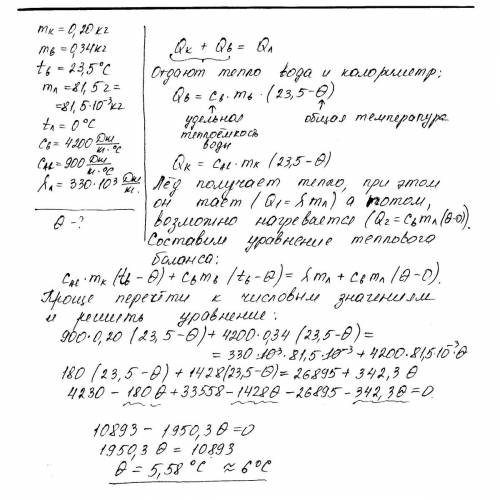 mк = 0,20 кг
mв = 0,34 кг
tв = 23,5°C
mл = 81,5 г =
= 81,5·10⁻³ кг
tл = 0°C
Cв = 4200 Дж/кг·°C
Cал = 900 Дж/кг·°C
λл = 330·10³ Дж/кг
θ - ?
Qк + Qв = Qл
Отдают тепло вода и калориметр;
Qв = cв · mв · (23,5 - θ)
удельная теплоёмкость воды
общая температура
Qк = cал · mк (23,5 - θ)
Лёд получает тепло, при этом
он тает (Q₁ = λmл) а потом,
возможно нагревается (Q₂ = cв mл (θ-0)).
Составим уравнение теплового
баланса:
cал · mк (tв - θ) + cв mв (tв - θ) = λmл + cв mл (θ - 0).
Проще перейти к числовым значениям
и решить уравнение:
900·0,20 (23,5 - θ) + 4200·0,34 (23,5 - θ) =
= 330·10³·81,5·10⁻³ + 4200·81,5·10⁻³θ
180 (23,5 - θ) + 1428 (23,5 - θ) = 26895 + 342,3θ
4230 - 180θ + 33558 - 1428θ - 26895 - 342,3θ = 0.
10893 - 1950,3θ = 0
1950,3θ = 10893
θ = 5,58 °C ≈ 6°C